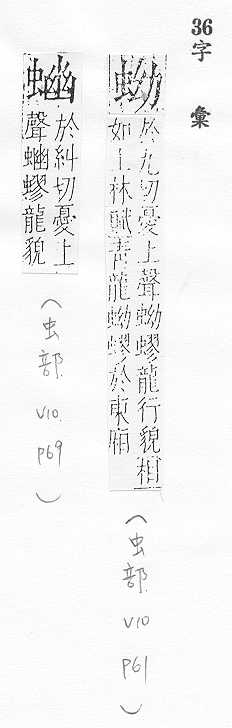 36字彙
蚴
於九切憂上聲蚴蟉龍行貌相
如上林賦青龍蚴蟉於東廂
(虫部 V10 P61)
於糾切憂上
聲蟉龍貌
(虫部 V10. P69)